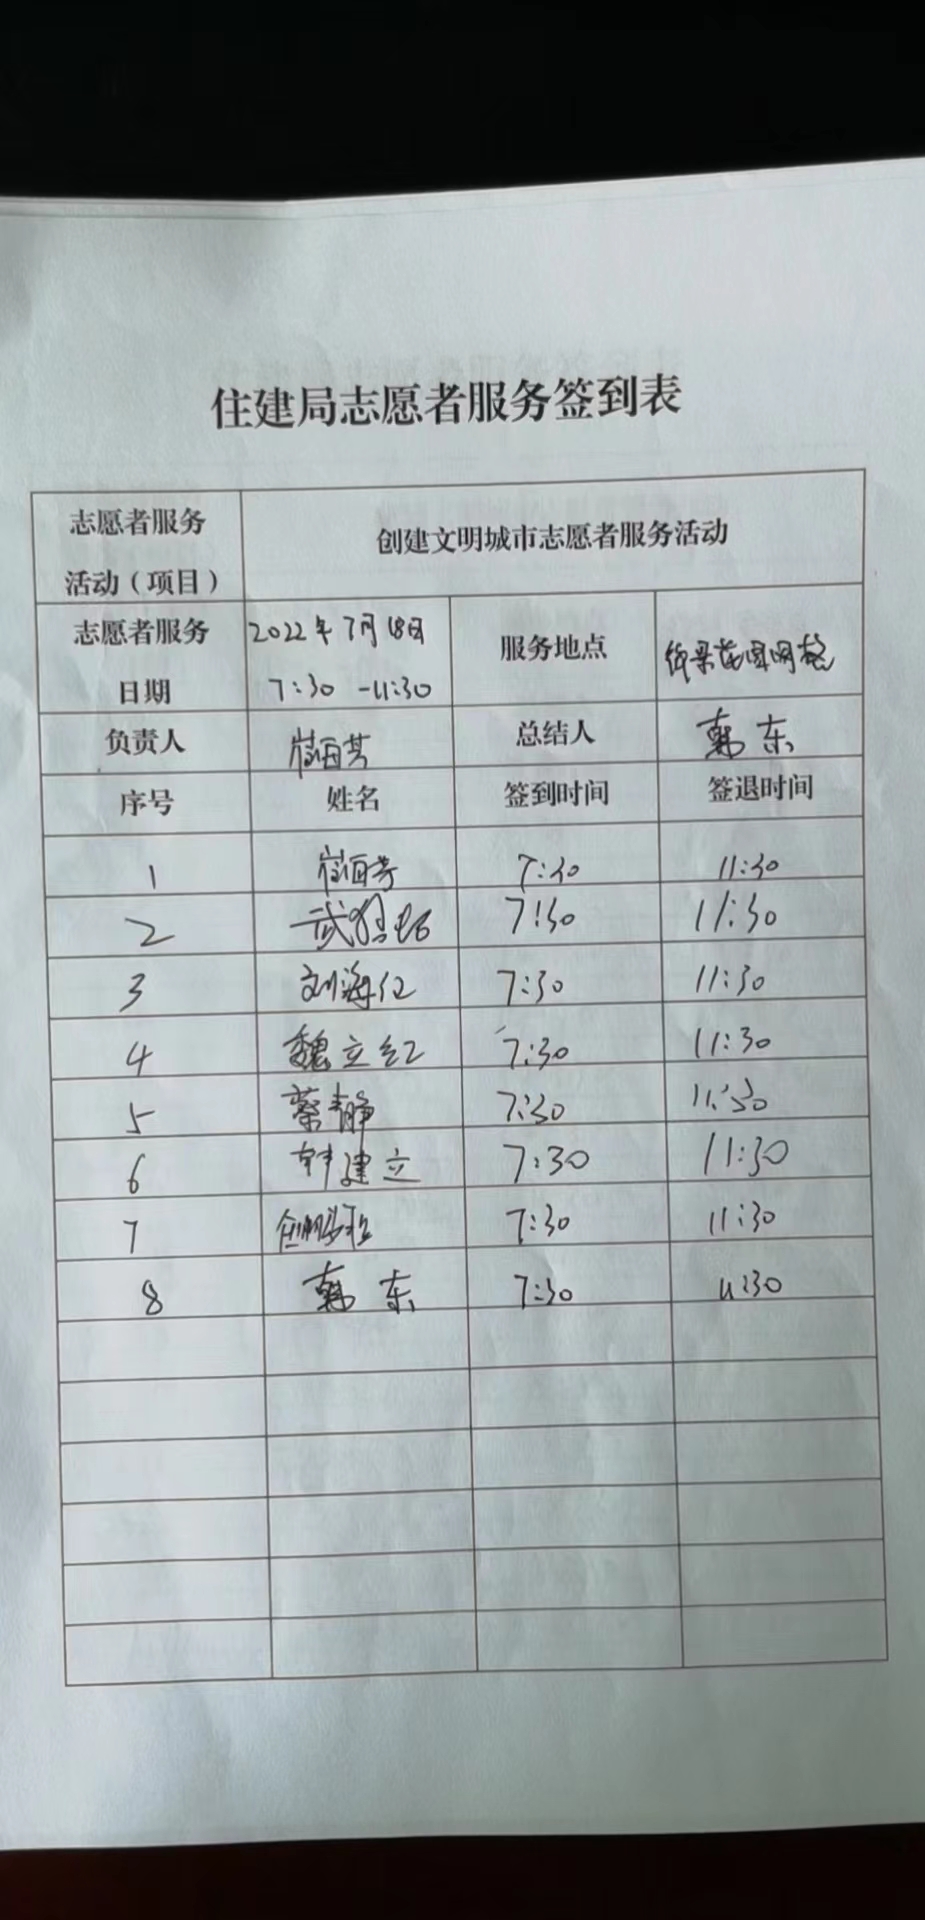 住建局志愿者服务签到表
志愿者服务
活动（项目） 创建文明城市志愿者服务活动
志愿者服务
日期 2022年7月18日
7:30 -11:30 服务地点
负责人 总结人 韩东
序号 姓名 签到时间 签退时间
1 7:30 11:30
2 武 7:30 11:30
3 刘海红 7:30 11:30
4 魏立红 7:30 11:30
5 蔡静 7:30 11:30
6 韩建立 7:30 11:30
7 7:30 11:30
8 韩东 7:30 11:30